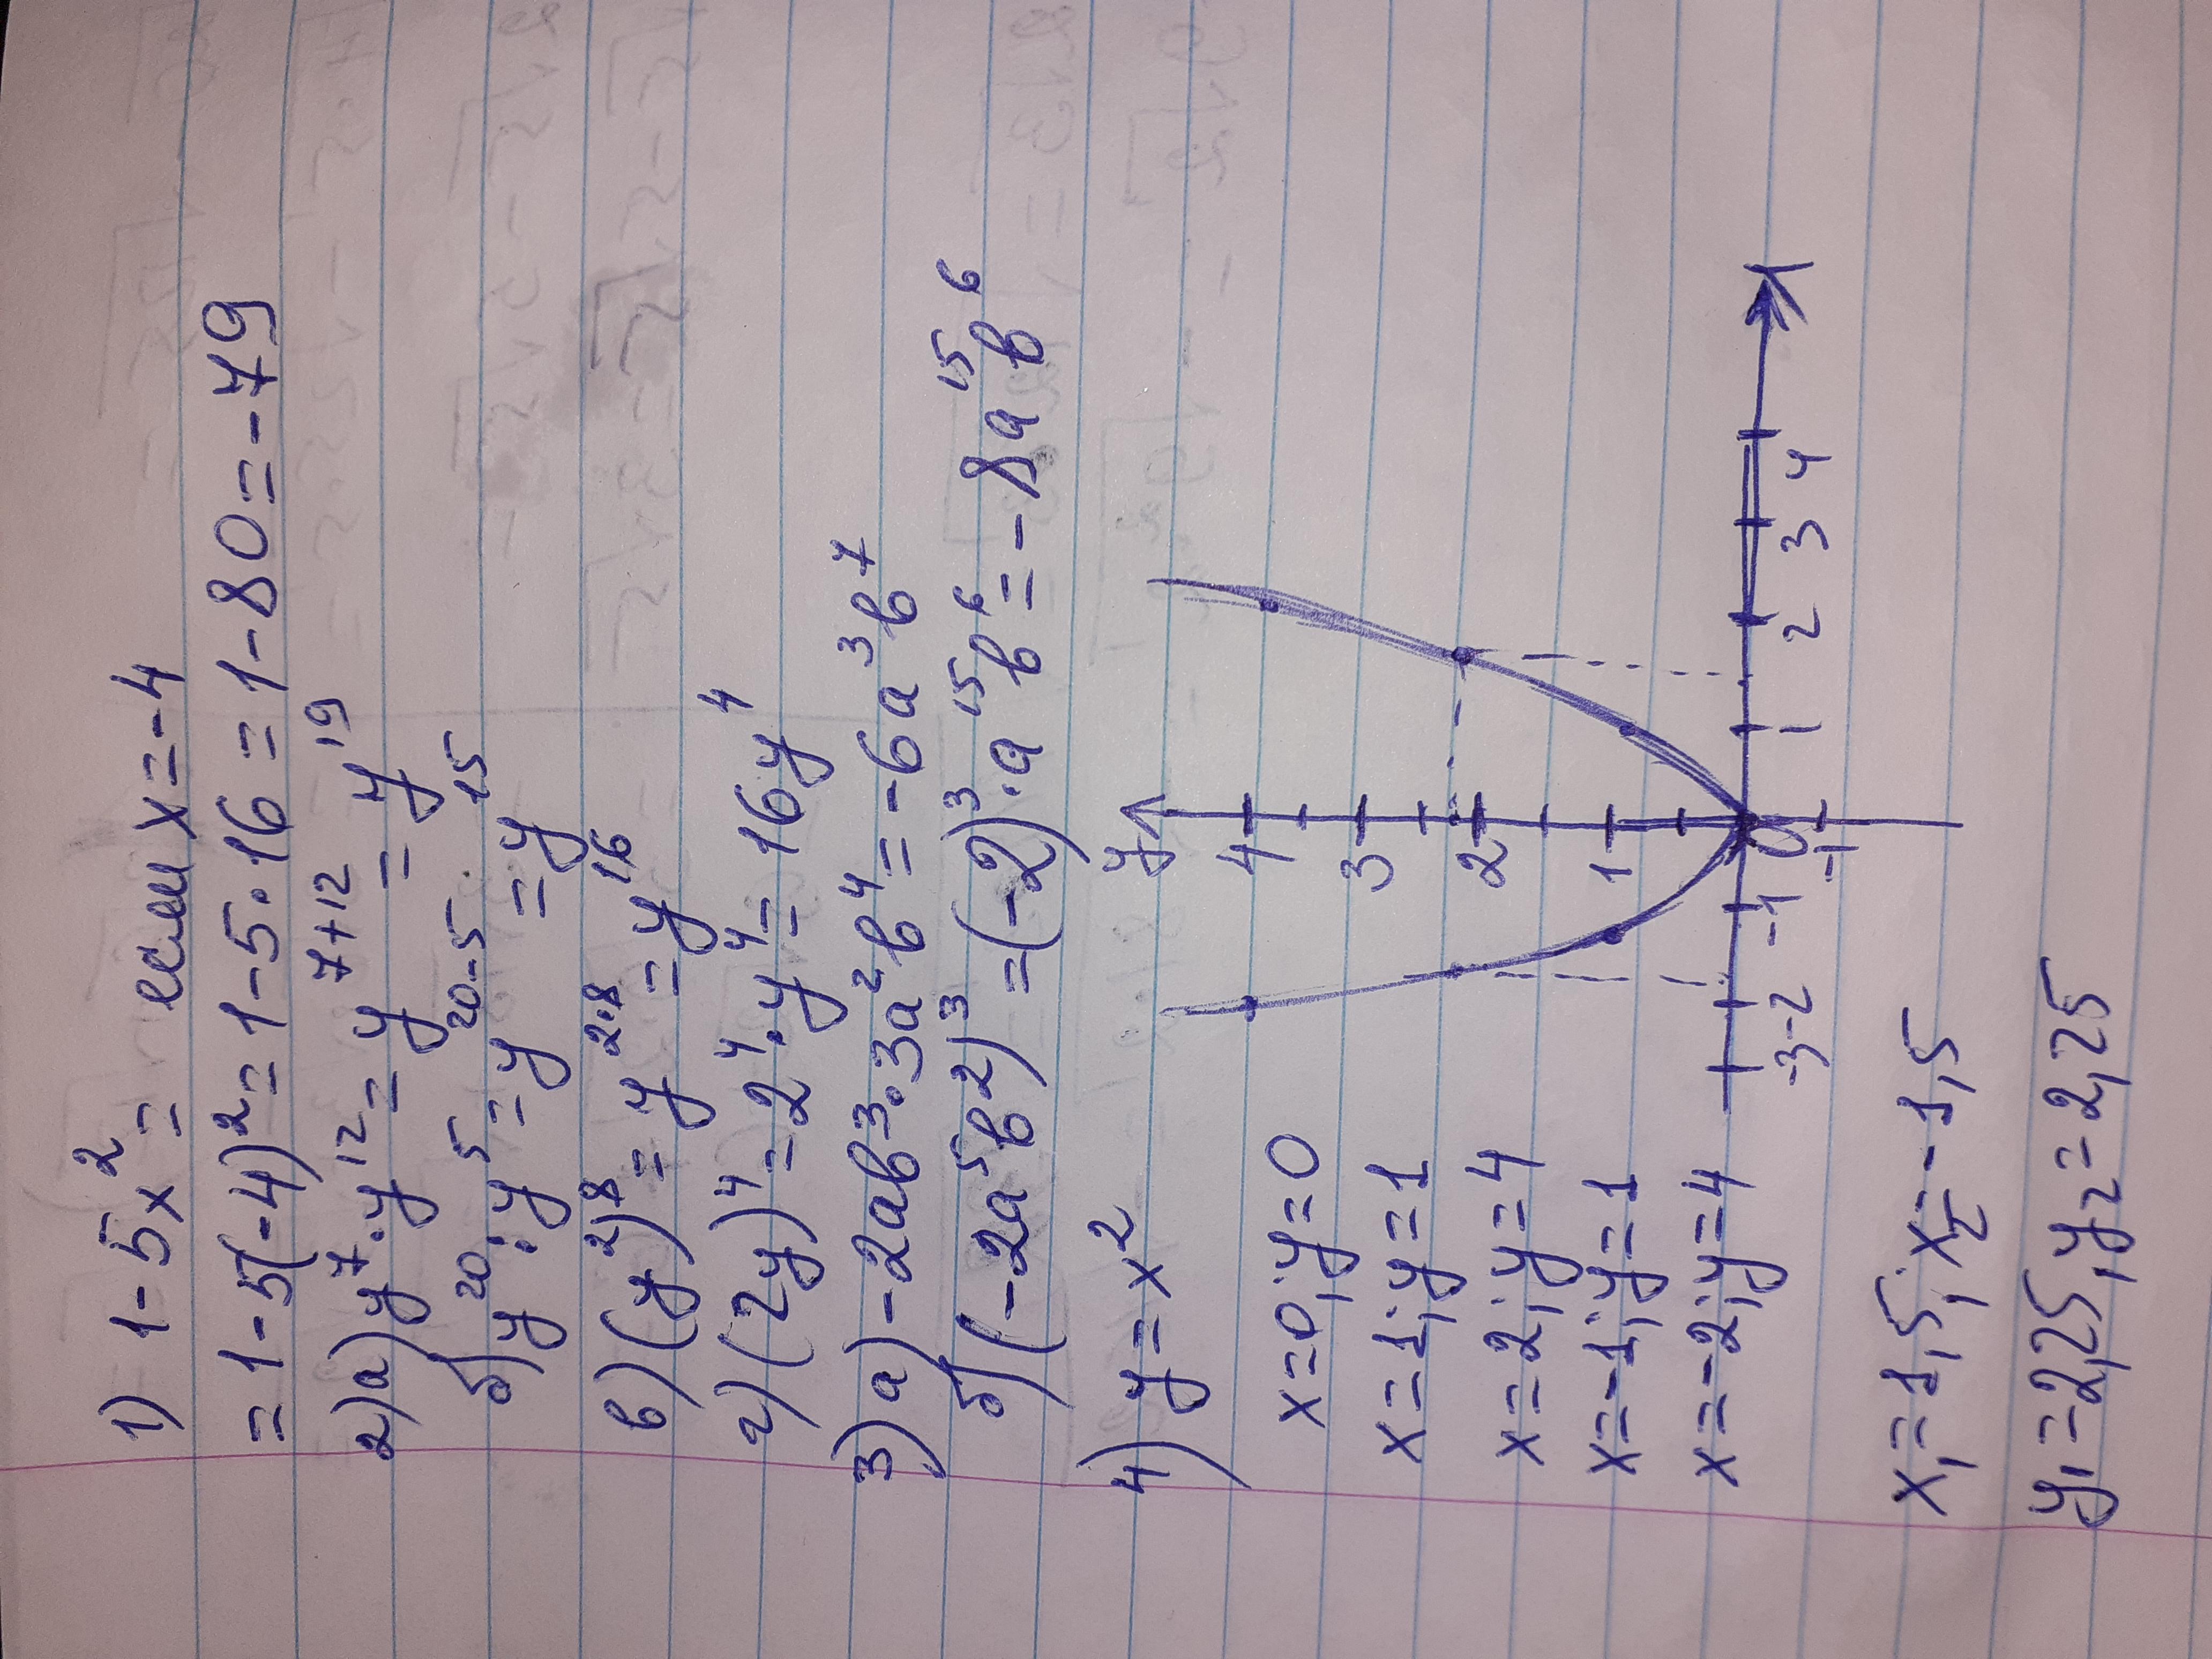 1) 1-5x² = если x=-4
=1-5(-4)²=1-5·16=1-80=-79
2)а)y⁷·y¹²=y⁷⁺¹²=y¹⁹
б)y²⁰:y⁵=y²⁰⁻⁵=y¹⁵
в)(y²)⁸=y²·⁸=y¹⁶
г)(2y)⁴=2⁴·y⁴=16y⁴
3)а)-2ab³·3a²b⁴=-6a³b⁷
б)(-2a⁵b²)³=(-2)³·a¹⁵b⁶=-8a¹⁵b⁶
4) y=x²
x=0; y=0
x=1; y=1
x=2; y=4
x=-1; y=1
x=-2; y=4
y
4
3
2
1
-3 -2 -1 0 1 2 3 4 x
-1
x₁=1,5; x₂=-1,5
y₁=2,25; y₂=2,25